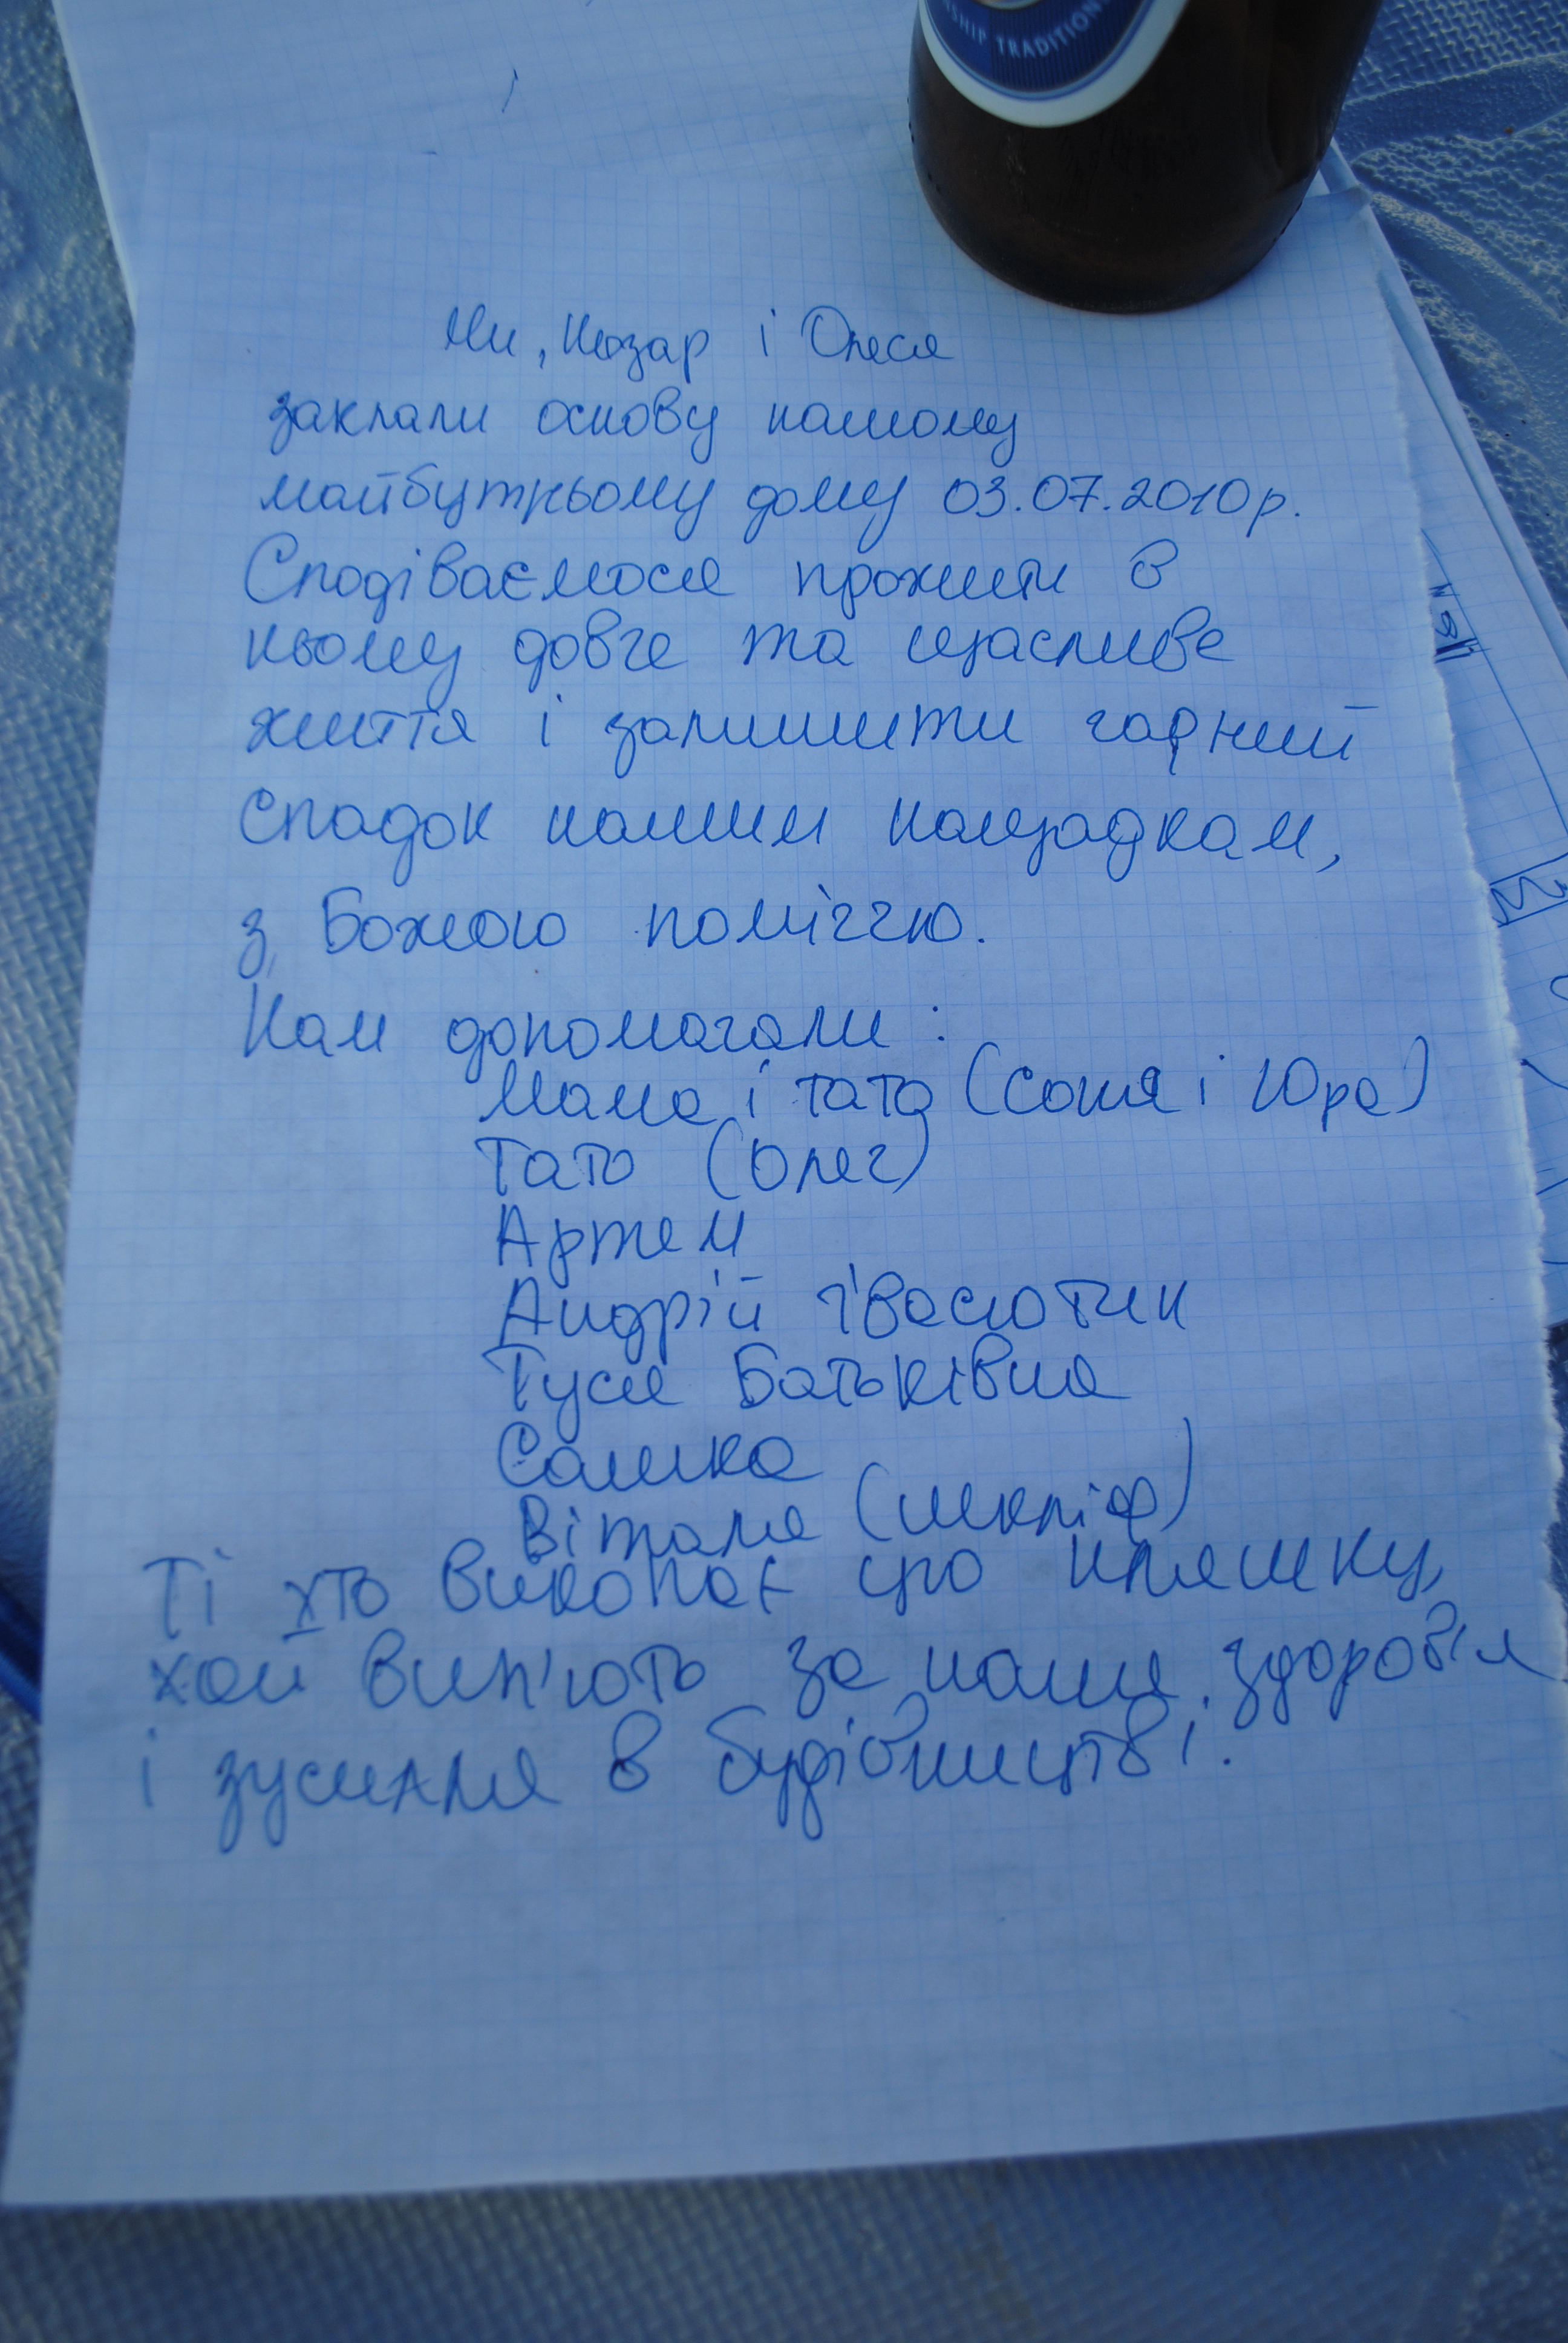 SHIP TRADITION
Ми, Назар і Олеся
заклали основу нашому
майбутньому дому 03.07.2010р.
Сподіваємося прожити в
ньому довге та щасливе
життя і залишити гарний
спадок нашим нащадкам,
з Божою поміччю.
Нам допомагали:
Мама і тато (Соня і Юра)
Тато (Олег)
Артем
Андрій Івасютин
Туся Батьківна
Сашко
Віталя (шкліф)
Ті хто викопає цю пляшку,
хай вип'ють за наше здоров'я
і зусилля в будівництві.